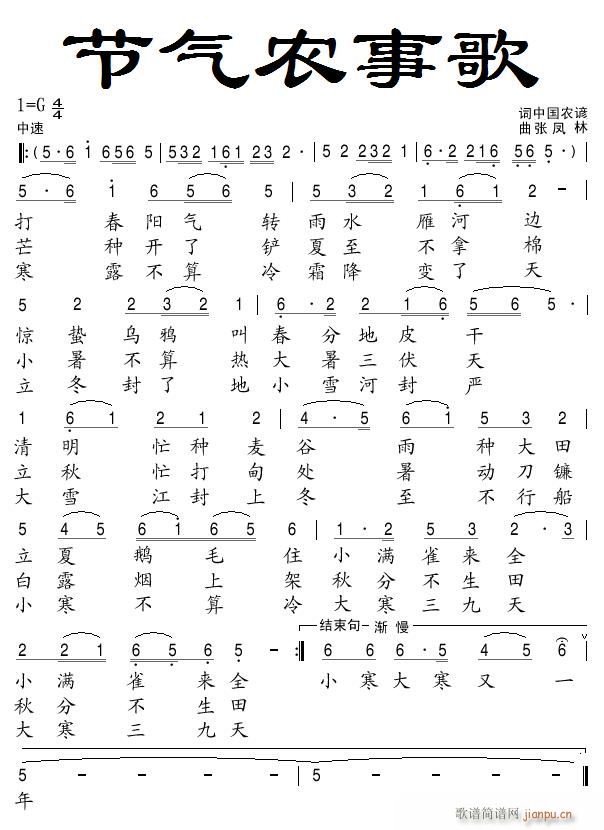 节气农事歌
1=G 4/4
词中国农谚
中速
曲张凤林
‖:(5·6 1 6 5 6 5 | 5 3 2 1 6 1 2 3 2 | 5 2 2 3 2 1 2 | 6·2 2 1 6 5 6 5·)
5·6 1 6 5 6 5 | 5 3 2 1 6 1 2 -
打春阳气转雨水雁河边
芒种开了铲夏至不拿棉
寒露不算冷霜降变了天
5 2 2 2 3 2 1 | 6·2 2 1 6 5 6 5·
惊蛰乌鸦叫春分地皮干
小暑不算热大暑三伏天
立冬封了地小雪河封严
1 6 1 2 1 2 | 4·5 6 1 5 3 2
清明忙种麦谷雨种大田
立秋忙打甸处暑动刀镰
大雪江封上冬至不行船
5 4 5 6 1 6 5 | 1·2 5 5 2·3
立夏鹅毛住小满雀来全
白露烟上架秋分不生田
小寒不算冷大寒三九天
结束句 渐慢
2 2 1 6 5 6 5 - :‖ 6 6 6·5 4 5 6
小满雀来全 小寒大寒又一
秋分不生田
大寒三九天
5 - - - | 5 - - - ‖
年
歌谱简谱网
jianpu.cn